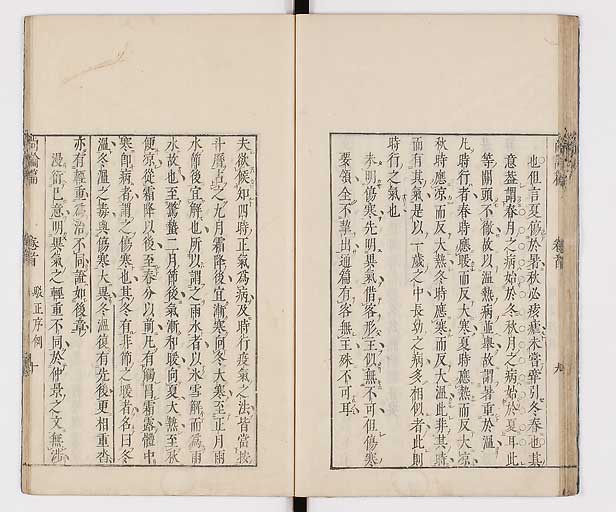 也但言夏傷於暑秋必痎瘧未嘗牽引冬春也其
意蓋謂春月之病始於冬秋月之病始於夏耳此
等關頭不徹故以溫熱病並舉故謂暑重於溫
凡時行者春時應暖而反大寒夏時應熱而反大凉
秋時應凉而反大熱冬時應寒而反大溫此非其時
而有其氣是以一歲之中長幼之病多相似者此則
時行之氣也
未明傷寒先明異氣借客形主似無不可但傷寒
要領全不挈出通篇有客無主殊不可耳
尚論篇 卷首 九
夫欲候知四時正氣為病及時行疫氣之法皆當按
斗曆占之九月霜降後宜漸寒向冬大寒至正月雨
水節後宜解也所以謂之雨水者以氷雪解而為雨
水故也至驚蟄二月節後氣漸和暖向夏大熱至秋
便凉從霜降以後至春分以前凡有觸冒霜露體中
寒即病者謂之傷寒也其冬有非節之暖者名曰冬
溫冬溫之毒與傷寒大異冬溫復有先後更相重沓
亦有輕重為治不同證如後章
漫衍已意明異氣之輕重不同於仲景之文無涉
尚論篇 卷首 駁正序例 十